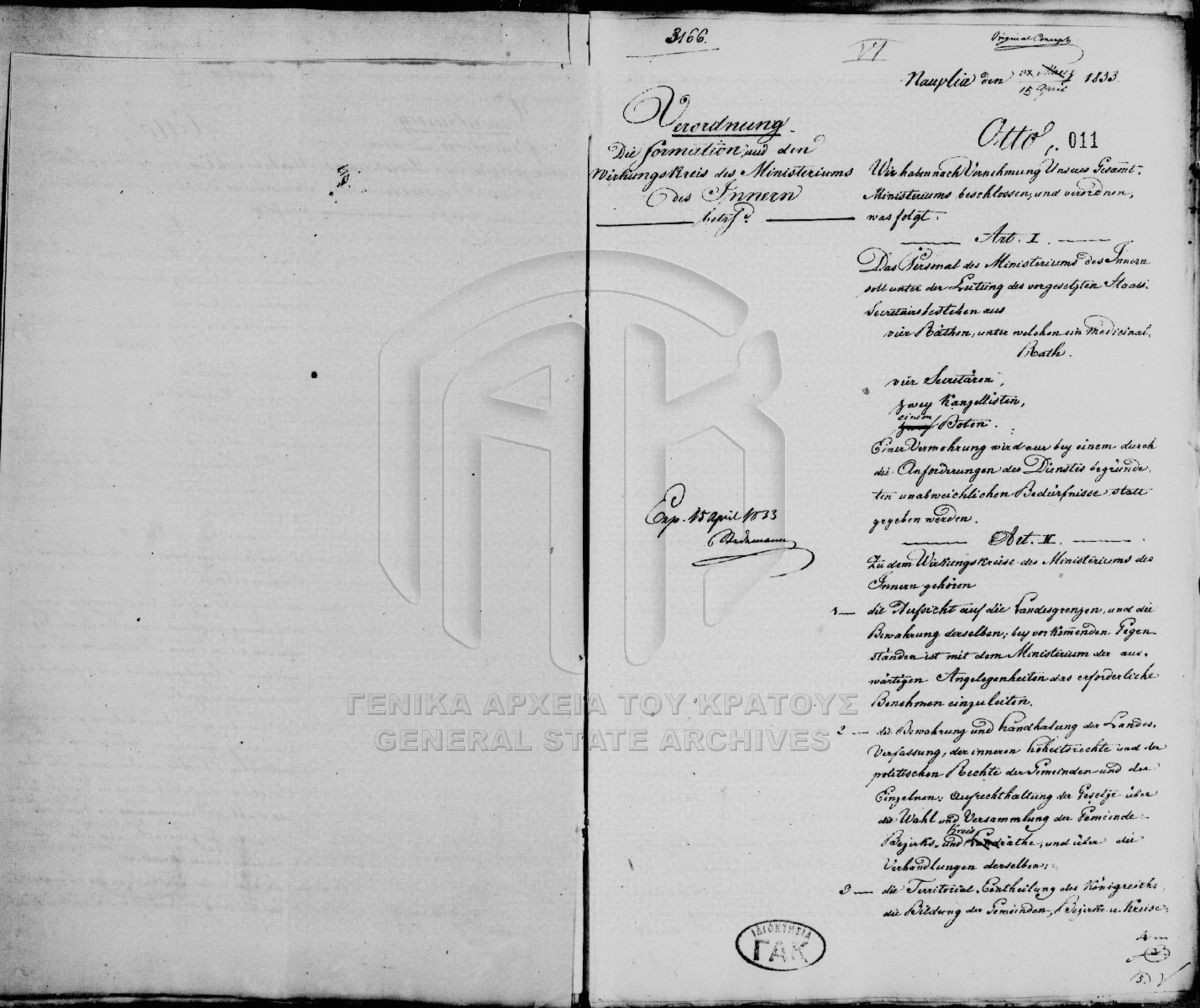 3166.
VI
Original Concept
Nauplia den 15 April 1833
Verordnung.
Die formation und den
Wirkungskreis des Ministeriums
des Innern
betrfd.
Otto, 011
Wir haben nach Vernehmung Unseres Gesammt-
Ministeriums beschlossen, und verordnen,
was folgt.
Art. I.
Das Personal des Ministeriums des Innern
soll unter der Leitung des vorgesetzten Staats-
Secretairs bestehen aus
vier Räthen, unter welchen ein Medicinal-
Rath.
vier Secretären,
zwey Kanzellisten,
einem
Boten.
Einer Vermehrung wird nur bey einem durch
die Anforderungen des Dienstes begründe-
ten unabweichlichen Bedürfnisse statt
gegeben werden.
Exp. 15 April 1833
Art. II.
Zu dem Wirkungskreise des Ministeriums des
Innern gehören
1— die Aufsicht auf die Landesgrenzen, und die
Bewahrung derselben; bey vorkommenden Gegen-
ständen ist mit dem Ministerium der aus-
wärtigen Angelegenheiten das erforderliche
Benehmen einzuleiten.
2— die Bewahrung und Handhabung der Landes-
Verfassung, der inneren Hoheitsrechte und der
politischen Rechte der Gemeinden und der
Einzelnen; Aufrechthaltung der Gesetze über
die Wahl und Versammlung der Gemeinde-
Kreis
Bezirks- und Landräthe, und über die
Verhandlungen derselben;
3— die Territorial Eentheilung des Königreichs
die Bildung der Gemeinden, Bezirke u. Kreise.
4
5.
ΓΕΝΙΚΑ ΑΡΧΕΙΑ ΤΟΥ ΚΡΑΤΟΥΣ
GENERAL STATE ARCHIVES
ΙΔΙΟΚΤΗΣΙΑ
ΓΑΚ